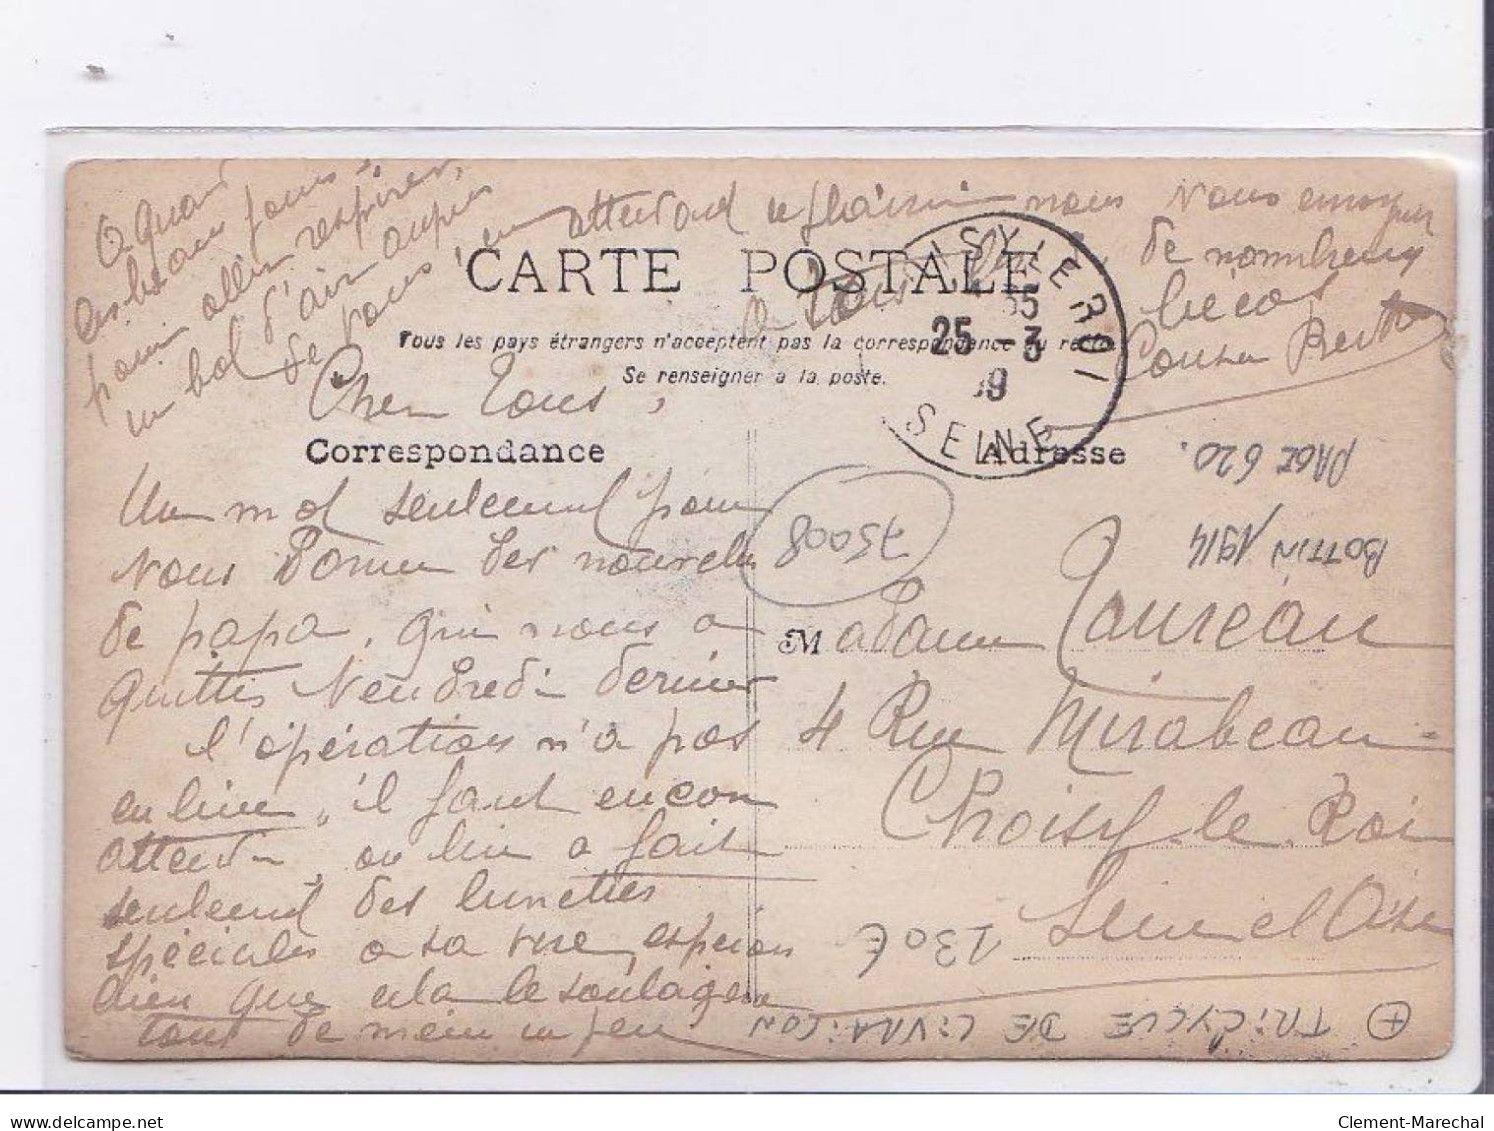 O quand
les beaux jours,
pour aller respirer,
un bol d'air auprès
de vous, en attendant ce plaisir nous vous envoyons
à tous de nombreux
bécots
CARTE POSTALE
Tous les pays étrangers n'acceptent pas la correspondance au recto
Se renseigner à la poste.
CHOISY-LE-ROI
35
25 -3
39
SEINE
Cher tous,
Correspondance
Adresse
Un mot seulement pour
vous donner des nouvelles
de papa, qui nous a
quittés Vendredi dernier
l'opération n'a pas
eu lieu, il faut encore
attendre, on lui a fait
seulement des lunettes
spéciales a sa vue, espérons
bien que cela le soulagera
tout de même un peu
Madame
4 Rue Mirabeau
Choisy-le-Roi
Seine et Oise
PAGE 620.
BOTTIN 1914
75008
130€
TRICYCLE DE LIVRAISON
delcampe.net
Clement-Marechal